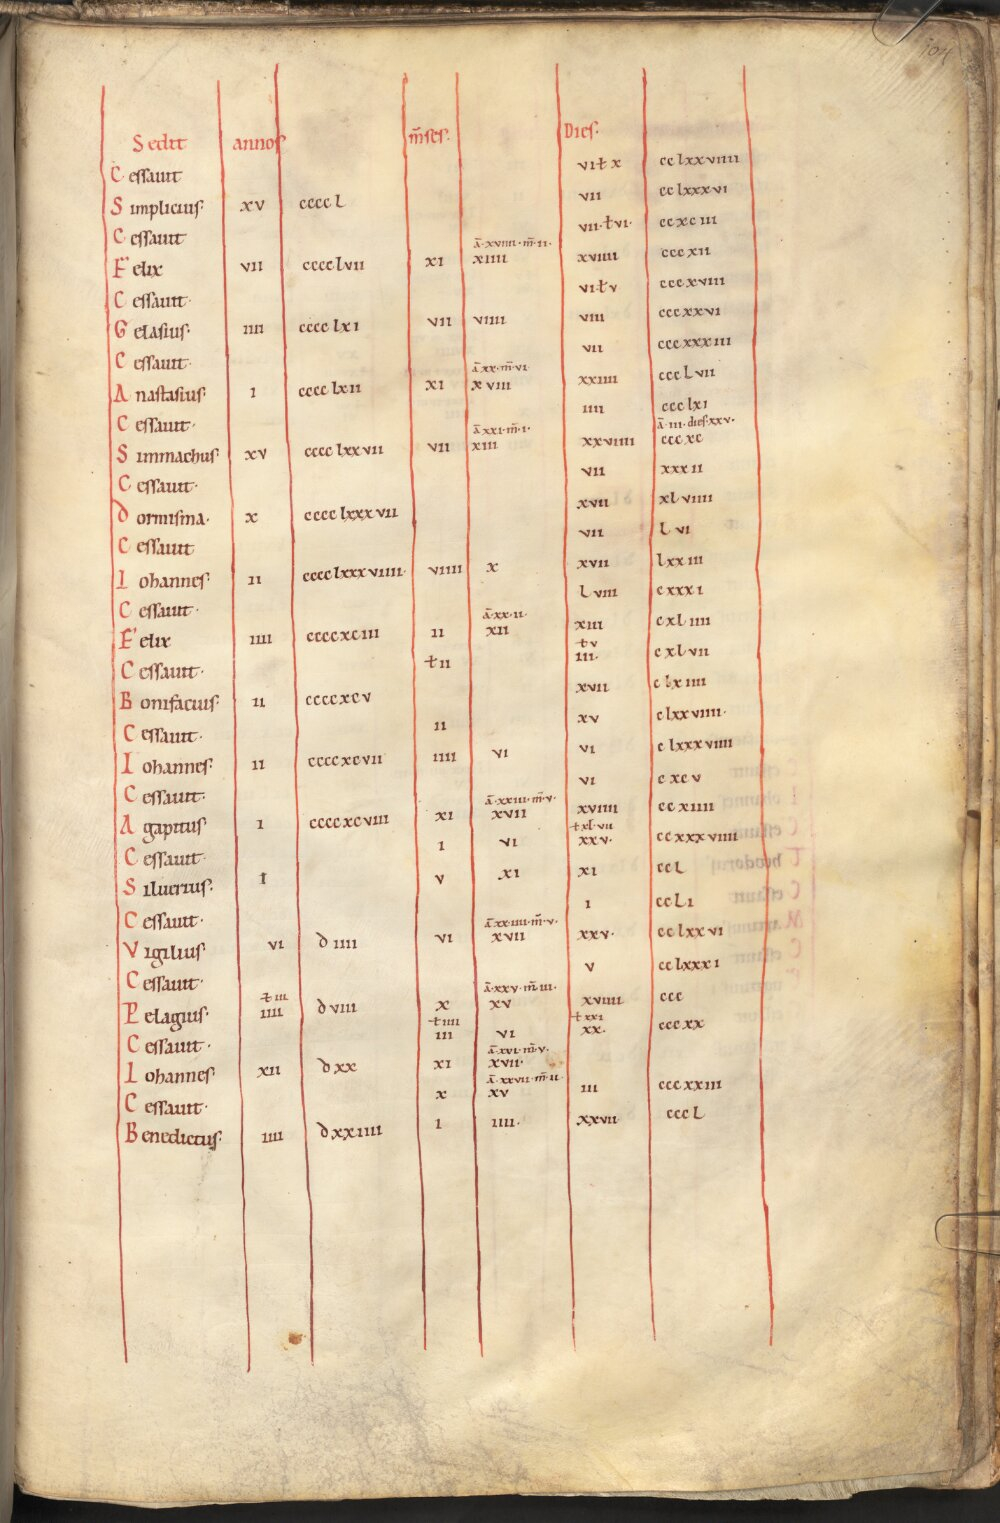 104
Sedit annos m̄ses. Dies.
Cessauit vi ł x cclxxviiii
Simplicius xv ccccl vii cclxxxvi
Cessauit vii·ł vi· ccxciii
ā·xviiii·m̄·ii·
Felix vii cccclvii xi xiiii xviiii cccxii
Cessauit vi ł v cccxviii
Gelasius· iiii cccclxi vii viiii viii cccxxvi
Cessauit· vii cccxxxiii
ā·xx·m̄·vi·
Anastasius· i cccclxii xi xviii xxiiii ccclvii
Cessauit· iiii ccclxi
ā·xxi·m̄·i· ā·iii·dies·xxv·
Simmachus· xv cccclxxvii vii xiii xxviiii cccxc
Cessauit· vii xxxii
Dormisma· x cccclxxxvii xvii xlviiii
Cessauit vii lvi
Iohannes· ii cccclxxxviiii· viiii x xvii lxxiii
Cessauit· lviii cxxxi
ā·xx·ii·
Felix iiii ccccxciii ii xii xiii cxliiii
ł v
Cessauit· ł ii iii· cxlvii
Bonifacius· ii ccccxcv xvii clxiiii
Cessauit· ii xv clxxviiii·
Iohannes· ii ccccxcvii iiii vi vi clxxxviiii
Cessauit· vi cxcv
ā·xxiii·m̄·v·
Agapitus· i ccccxcviii xi xvii xviiii ccxiiii
ł xl·vii
Cessauit· i vi xxv· ccxxxviiii
Siluerius· i v xi xi ccl
Cessauit· i ccli
ā·xx·iiii·m̄·v·
Vigilius vi diiii vi xvii xxv· cclxxvi
Cessauit· v cclxxxi
ł iii ā·xxv·m̄·iii·
Pelagius· iiii dviii x xv xviiii ccc
ł iiii ł xxi
Cessauit· iii vi xx· cccxx
ā·xvi·m̄·v·
Iohannes· xii dxx xi xvii·
ā·xxvii·m̄·ii·
Cessauit· x xv iii cccxxiii
Benedictus· iiii dxxiiii i iiii· xxvii cccl